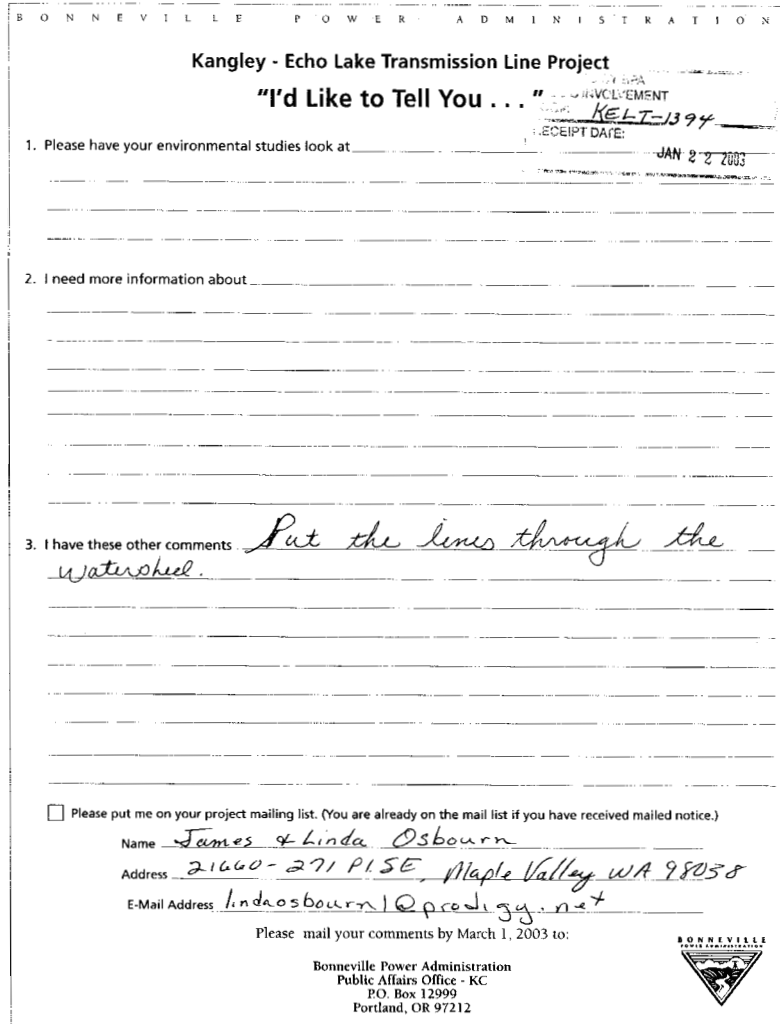 BONNEVILLE POWER ADMINISTRATION
Kangley - Echo Lake Transmission Line Project
"I'd Like to Tell You . . ."
BPA
INVOLVEMENT
KELT-1394
RECEIPT DATE:
JAN 22 2003
1. Please have your environmental studies look at
2. I need more information about
3. I have these other comments Put the lines through the
watershed.
Please put me on your project mailing list. (You are already on the mail list if you have received mailed notice.)
Name James & Linda Osbourn
Address 21660-271 Pl. SE, Maple Valley WA 98038
E-Mail Address lindaosbourn1@prodigy.net
Please mail your comments by March 1, 2003 to:
Bonneville Power Administration
Public Affairs Office - KC
P.O. Box 12999
Portland, OR 97212
BONNEVILLE
POWER ADMINISTRATION